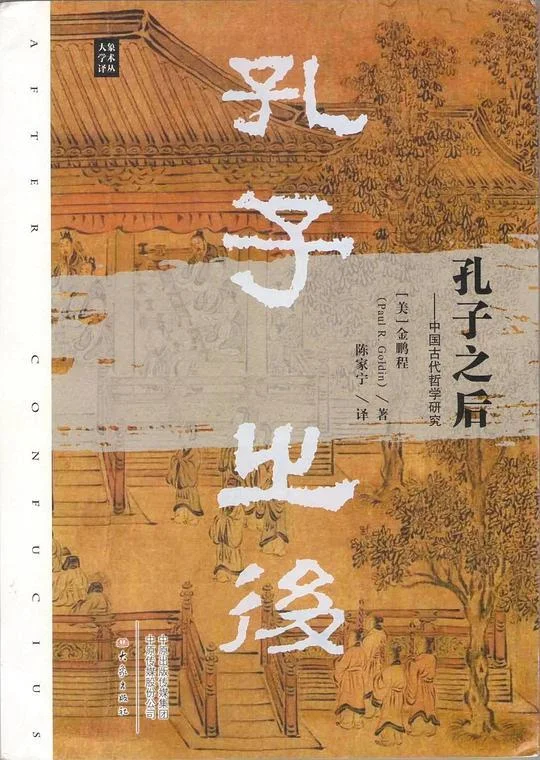 AFTER CONFUCIUS
大象
学术
译丛
孔子之後
孔子之后
——中国古代哲学研究
［美］金鹏程
(Paul R. Goldin)／著
陈家宁／译
中原出版传媒集团
中原传媒股份公司
大象出版社